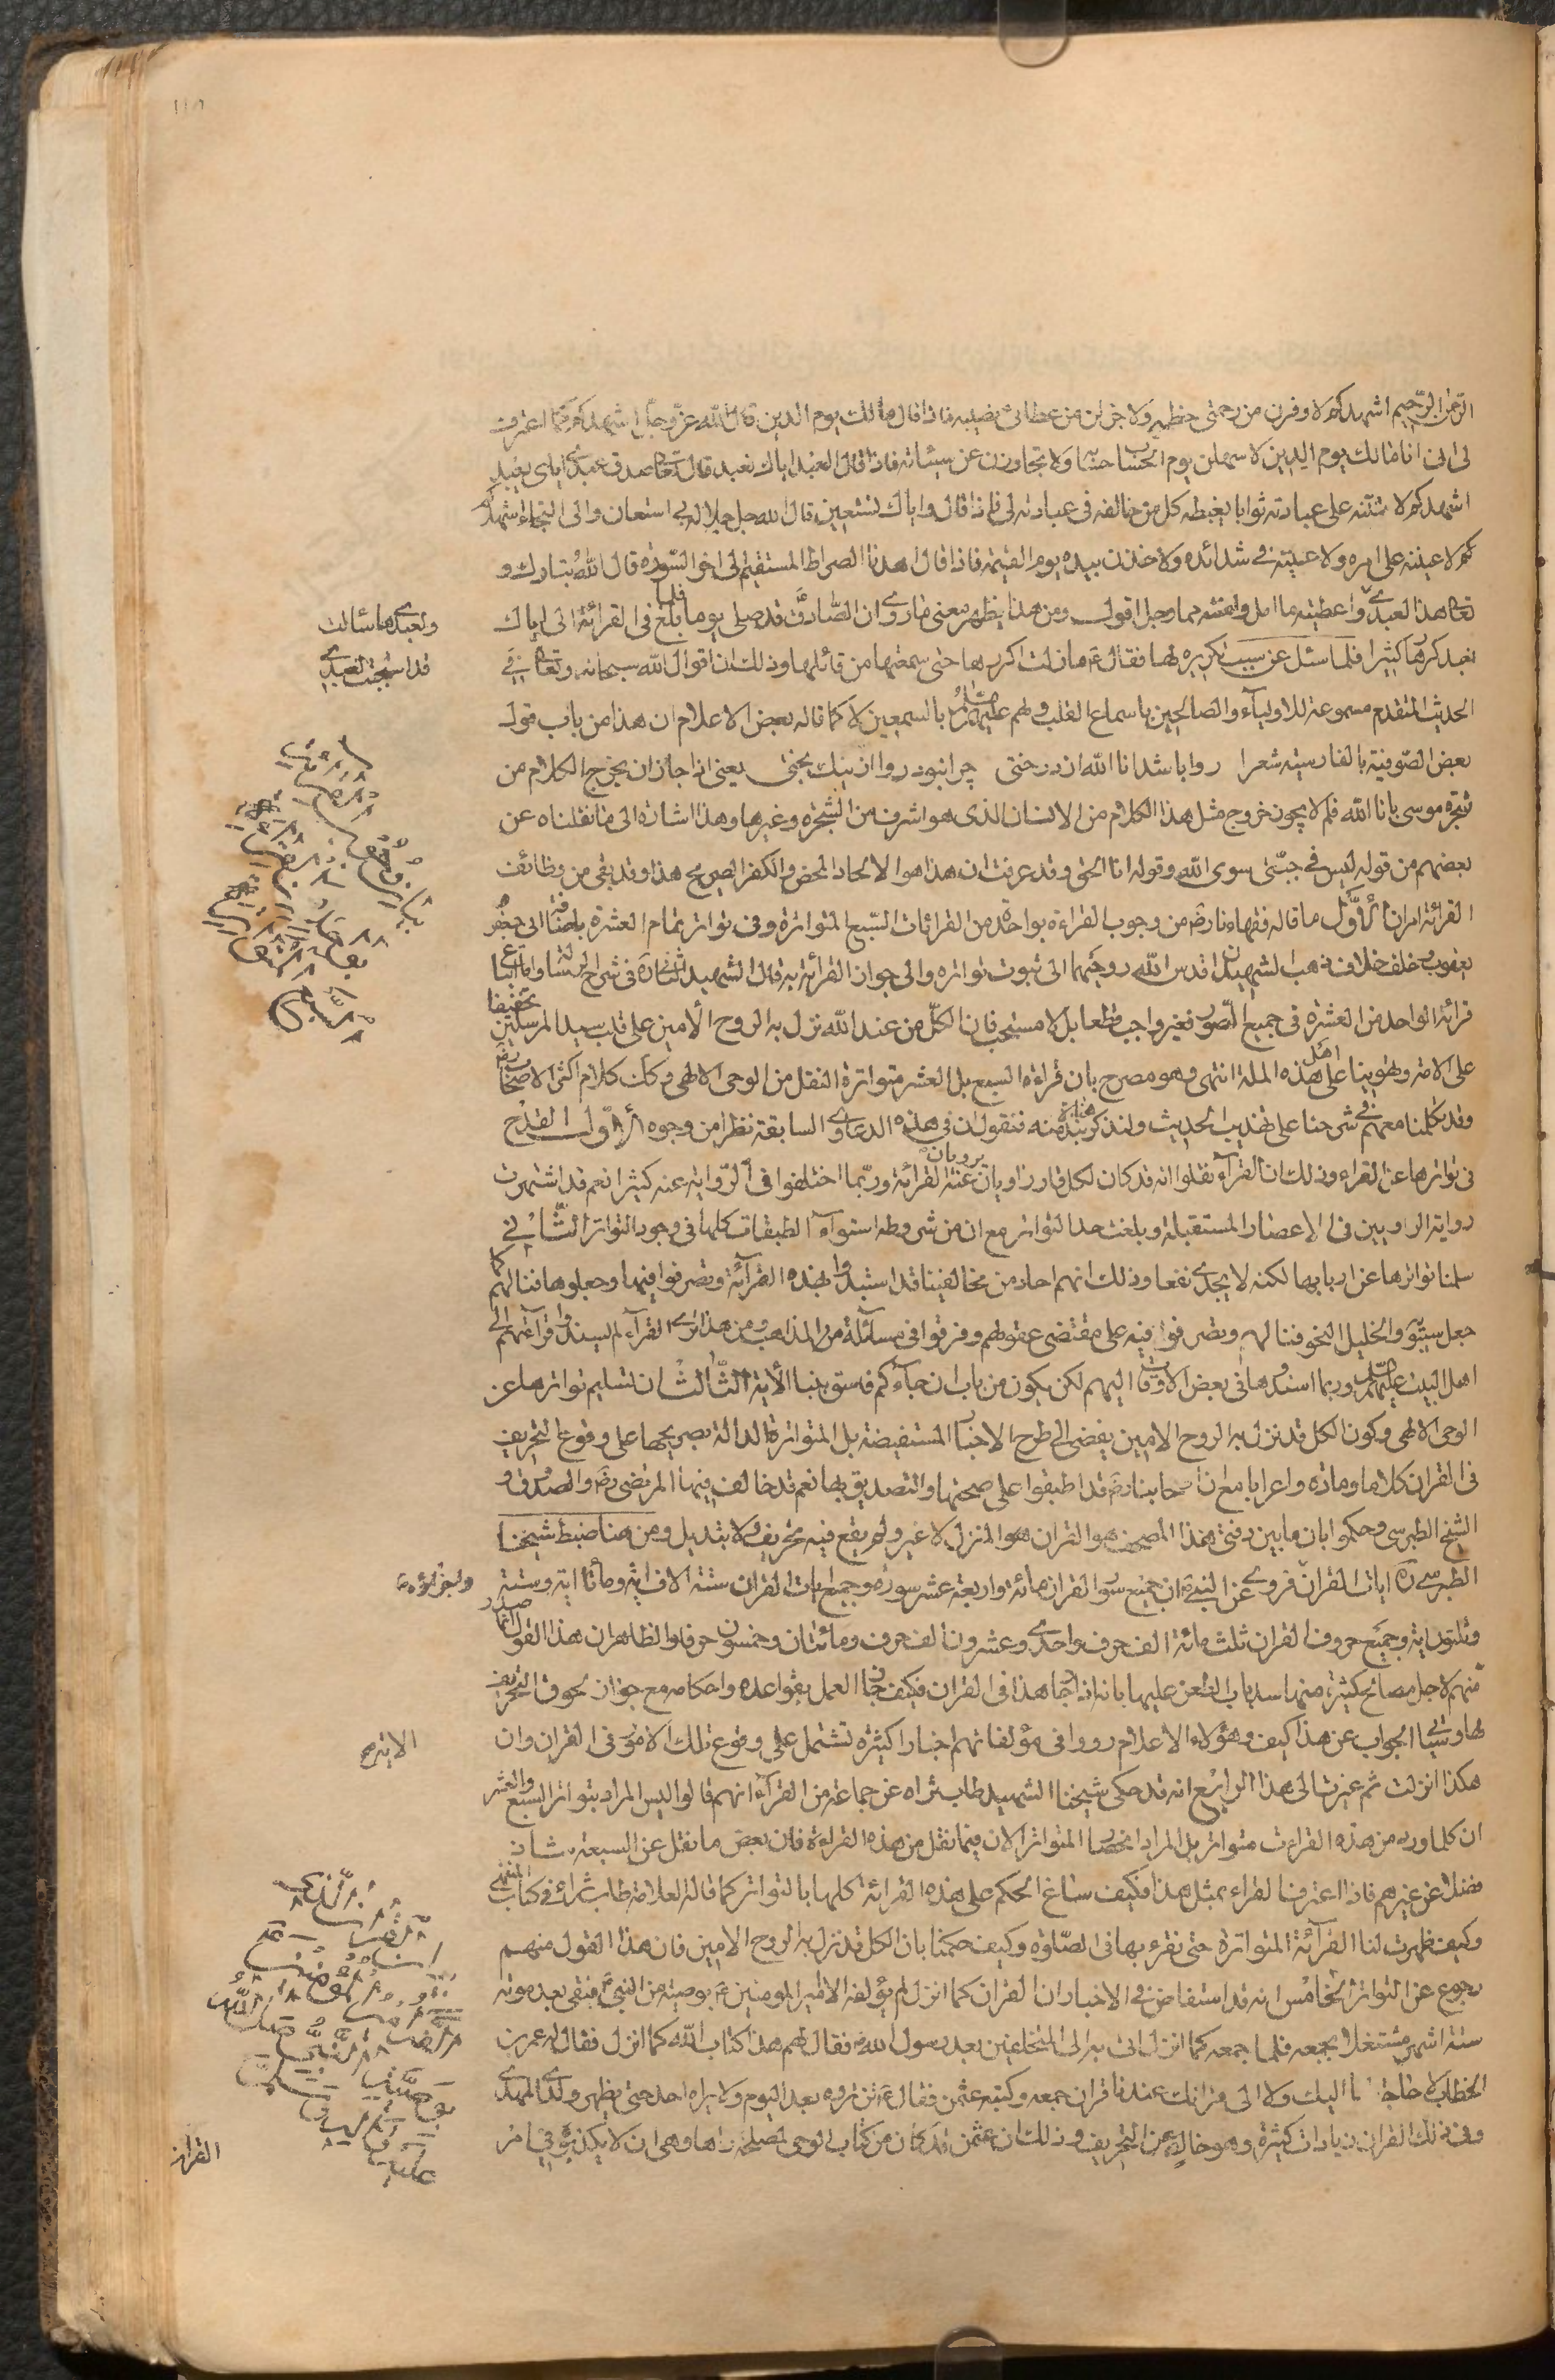 الرحمن الرحيم اشهدكم لاوفرن من رحمتى حظه ولاجزلن من عطائى نصيبه فاذا قال مالك يوم الدين قال الله عز وجل اشهدكم كما اعترف
لى انى انا مالك يوم الدين لاسهلن يوم الحساب حسابه ولاتجاوزن عن سيئاته فاذا قال العبد اياك نعبد قال الله تعالى صدق عبدى اياى يعبد
اشهدكم لاثيبنه على عبادته ثوابا يغبطه كل من خالفه فى عبادته لى فاذا قال واياك نستعين قال الله جل جلاله بى استعان والى التجاء اشهدكم
كم لاعيننه على امره ولاعيننه فى شدائده ولاخذن بيده يوم القيمة فاذا قال اهدنا الصراط المستقيم الى اخر السورة قال الله تبارك و
تعالى هذا لعبدى واعطيته ما امل وامنته مما وجل اقول ومن هذا يظهر معنى ما روى ان الصادق قد صلى يوما فلما بلغ فى القرائة الى اياك
نعبد كررها كثيرا فلما سئل عن سبب تكريره لها فقال ع ما زلت اكررها حتى سمعتها من قائلها وذلك ان اقوال الله سبحانه وتعالى فى
الحديث المتقدم مسموعة للاولياء والصالحين باسماع القلب ولهم عليهم السلام بالسمعين لا كما قاله بعض الاعلام ان هذا من باب قول
بعض الصوفية بالفارسية شعرا روا باشد انا الله از درختى چرا نبود روا از نيك بختى يعنى اذا جاز ان يخرج الكلام من
شجرة موسى بانا الله فلم لا يجوز خروج مثل هذا الكلام من الانسان الذى هو اشرف من الشجرة وغيرها وهذا اشارة الى ما نقلناه عن
بعضهم من قوله ليس فى جبتى سوى الله وقوله انا الحق وقد عرفت ان هذا هو الالحاد المحض والكفر الصريح هذا وقد بقى من وظائف
القرائة امران الاول ما قاله فقهاؤنا رض من وجوب القراءة بواحدة من القرائات السبع المتواترة وفى تواتر تمام العشرة باضافة ابى جعفر
يعقوب وخلف خلاف ذهب الشهيدان قدس الله روحيهما الى ثبوت تواتره والى جواز القرائة به قال الشهيد الثانى ره فى شرح الرسالة واما اتباع
قرائة الواحد من العشرة فى جميع السور فغير واجب قطعا بل لا مستحب فان الكل من عند الله نزل به الروح الامين على قلب سيد المرسلين تخفيفا
على الامة وتهوينا على اهل هذه الملة انتهى وهو مصرح بان قراءة السبع بل العشر متواترة النقل من الوحى الالهى وكذلك كلام اكثر الاصحاب رض
وقد تكلمنا معهم فى شرحنا على تهذيب الحديث ولنذكر هنا نبذة منه فنقول ان فى هذه الدعاوى السابقة نظرا من وجوه الاول القدح
فى تواترها عن القراء وذلك ان القراء نقلوا انه قد كان لكل قار راويان يرويان عنه القرائة وربما اختلفوا فى الرواية عنه كثيرا نعم قد اشتهرت
رواية الراويين فى الاعصار المستقبلة وبلغت حد التواتر مع ان من شروطه استواء الطبقات كلها فى وجود التواتر الثانى
سلمنا تواترها عن اربابها لكنه لا يجدى نفعا وذلك انهم احاد من مخالفينا قد استبدوا بهذه القرائة وتصرفوا فيها وجعلوها فنا لهم كما
جعل سيبويه والخليل النحو فنا لهم وتصرفوا فيه على مقتضى عقولهم وفرقوا فى مسائله من المذاهب ومن هذا ترى القراء لم يسندوا قرائتهم الى
اهل البيت عليهم السلام وربما اسندوها فى بعض الاوقات اليهم لكن يكون من باب ان جاءكم فاسق بنبا الاية الثالث ان تسليم تواترها عن
الوحى الالهى وكون الكل قد نزل به الروح الامين يفضى الى طرح الاخبار المستفيضة بل المتواترة الدالة بصريحها على وقوع التحريف
فى القران كلاما ومادة واعرابا مع ان اصحابنا رض قد اطبقوا على صحتها والتصديق بها نعم قد خالف فيها المرتضى رض والصدوق و
الشيخ الطبرسى وحكموا بان ما بين دفتى هذا المصحف هو القران هو المنزل لا غير ولم يقع فيه تحريف ولا تبديل ومن هنا ضبط شيخنا
الطبرسى ره ايات القران فروى عن النبى ص ان جميع سور القران مائة واربعة عشر سورة وجميع ايات القران ستة الاف اية ومأتا اية وستة
وثلثون اية وجميع حروف القران ثلث مائة الف حرف واحدى وعشرون الف حرف ومائتان وخمسون حرفا والظاهر ان هذا القول انما صدر
منهم لاجل مصالح كثيرة منها سد باب الطعن عليها بانه اذا جاز هذا فى القران فكيف جاز العمل بقواعده واحكامه مع جواز لحوق التحريف
لها وسيأتى الجواب عن هذا كيف وهؤلاء الاعلام رووا فى مؤلفاتهم اخبارا كثيرة تشتمل على وقوع تلك الامور فى القران وان
هكذا انزلت ثم غيرت الى هذا الرابع انه قد حكى شيخنا الشهيد طاب ثراه عن جماعة من القراء انهم قالوا ليس المراد بتواتر السبع والعشر
ان كلما ورد من هذه القراءت متواتر بل المراد انحصار المتواتر الان فيما نقل من هذه القراءة فان بعض ما نقل عن السبعة شاذ
فضلا عن غيرهم فاذا اعترف القراء بمثل هذا فكيف ساغ الحكم على هذه القرائة كلها بالتواتر كما قاله العلامة طاب ثراه فى كتاب المنتهى
وكيف ظهرت لنا القرائة المتواترة حتى نقرء بها فى الصلوة وكيف حكمنا بان الكل قد نزل به الروح الامين فان هذا القول منهم
رجوع عن التواتر الخامس انه قد استفاض فى الاخبار ان القران كما انزل لم يؤلفه الا امير المومنين ع بوصية من النبى ص فبقى بعد موته
ستة اشهر مشتغلا بجمعه فلما جمعه كما انزل اتى به الى المتخلفين بعد رسول الله فقال لهم هذا كتاب الله كما انزل فقال له عمر بن
الخطاب لا حاجة بنا اليك ولا الى قرانك عندنا قران جمعه وكتبه عثمن فقال ع لن تروه بعد اليوم ولا يراه احد حتى يظهر ولدى المهدى
وفى ذلك القران زيادات كثيرة وهو خال عن التحريف وذلك ان عثمن قد كان من كتاب الوحى لمصلحة راها وهى ان لا يكذبوه فى امر
ولعبدى ما سئالك
قد استجبت لعبدى
الاية
القران